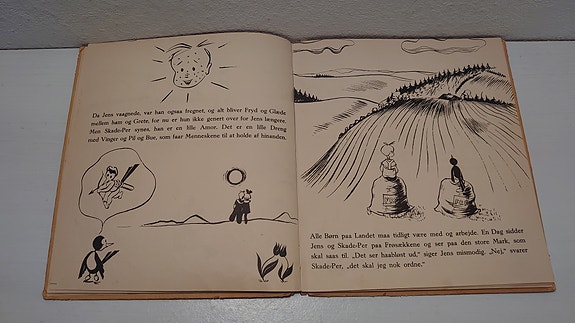 Da Jens vaagnede, var han ogsaa fregnet, og alt bliver Fryd og Glæde
mellem ham og Grete, for nu er hun ikke genert over for Jens længere.
Men Skade-Per synes, han er en lille Amor. Det er en lille Dreng
med Vinger og Pil og Bue, som faar Menneskene til at holde af hinanden.
Alle Børn paa Landet maa tidligt være med og arbejde. En Dag sidder
Jens og Skade-Per paa Frøsækkene og ser paa den store Mark, som
skal saas til. „Det ser haabløst ud,“ siger Jens mismodig. „Nej,“ svarer
Skade-Per, „det skal jeg nok ordne.“